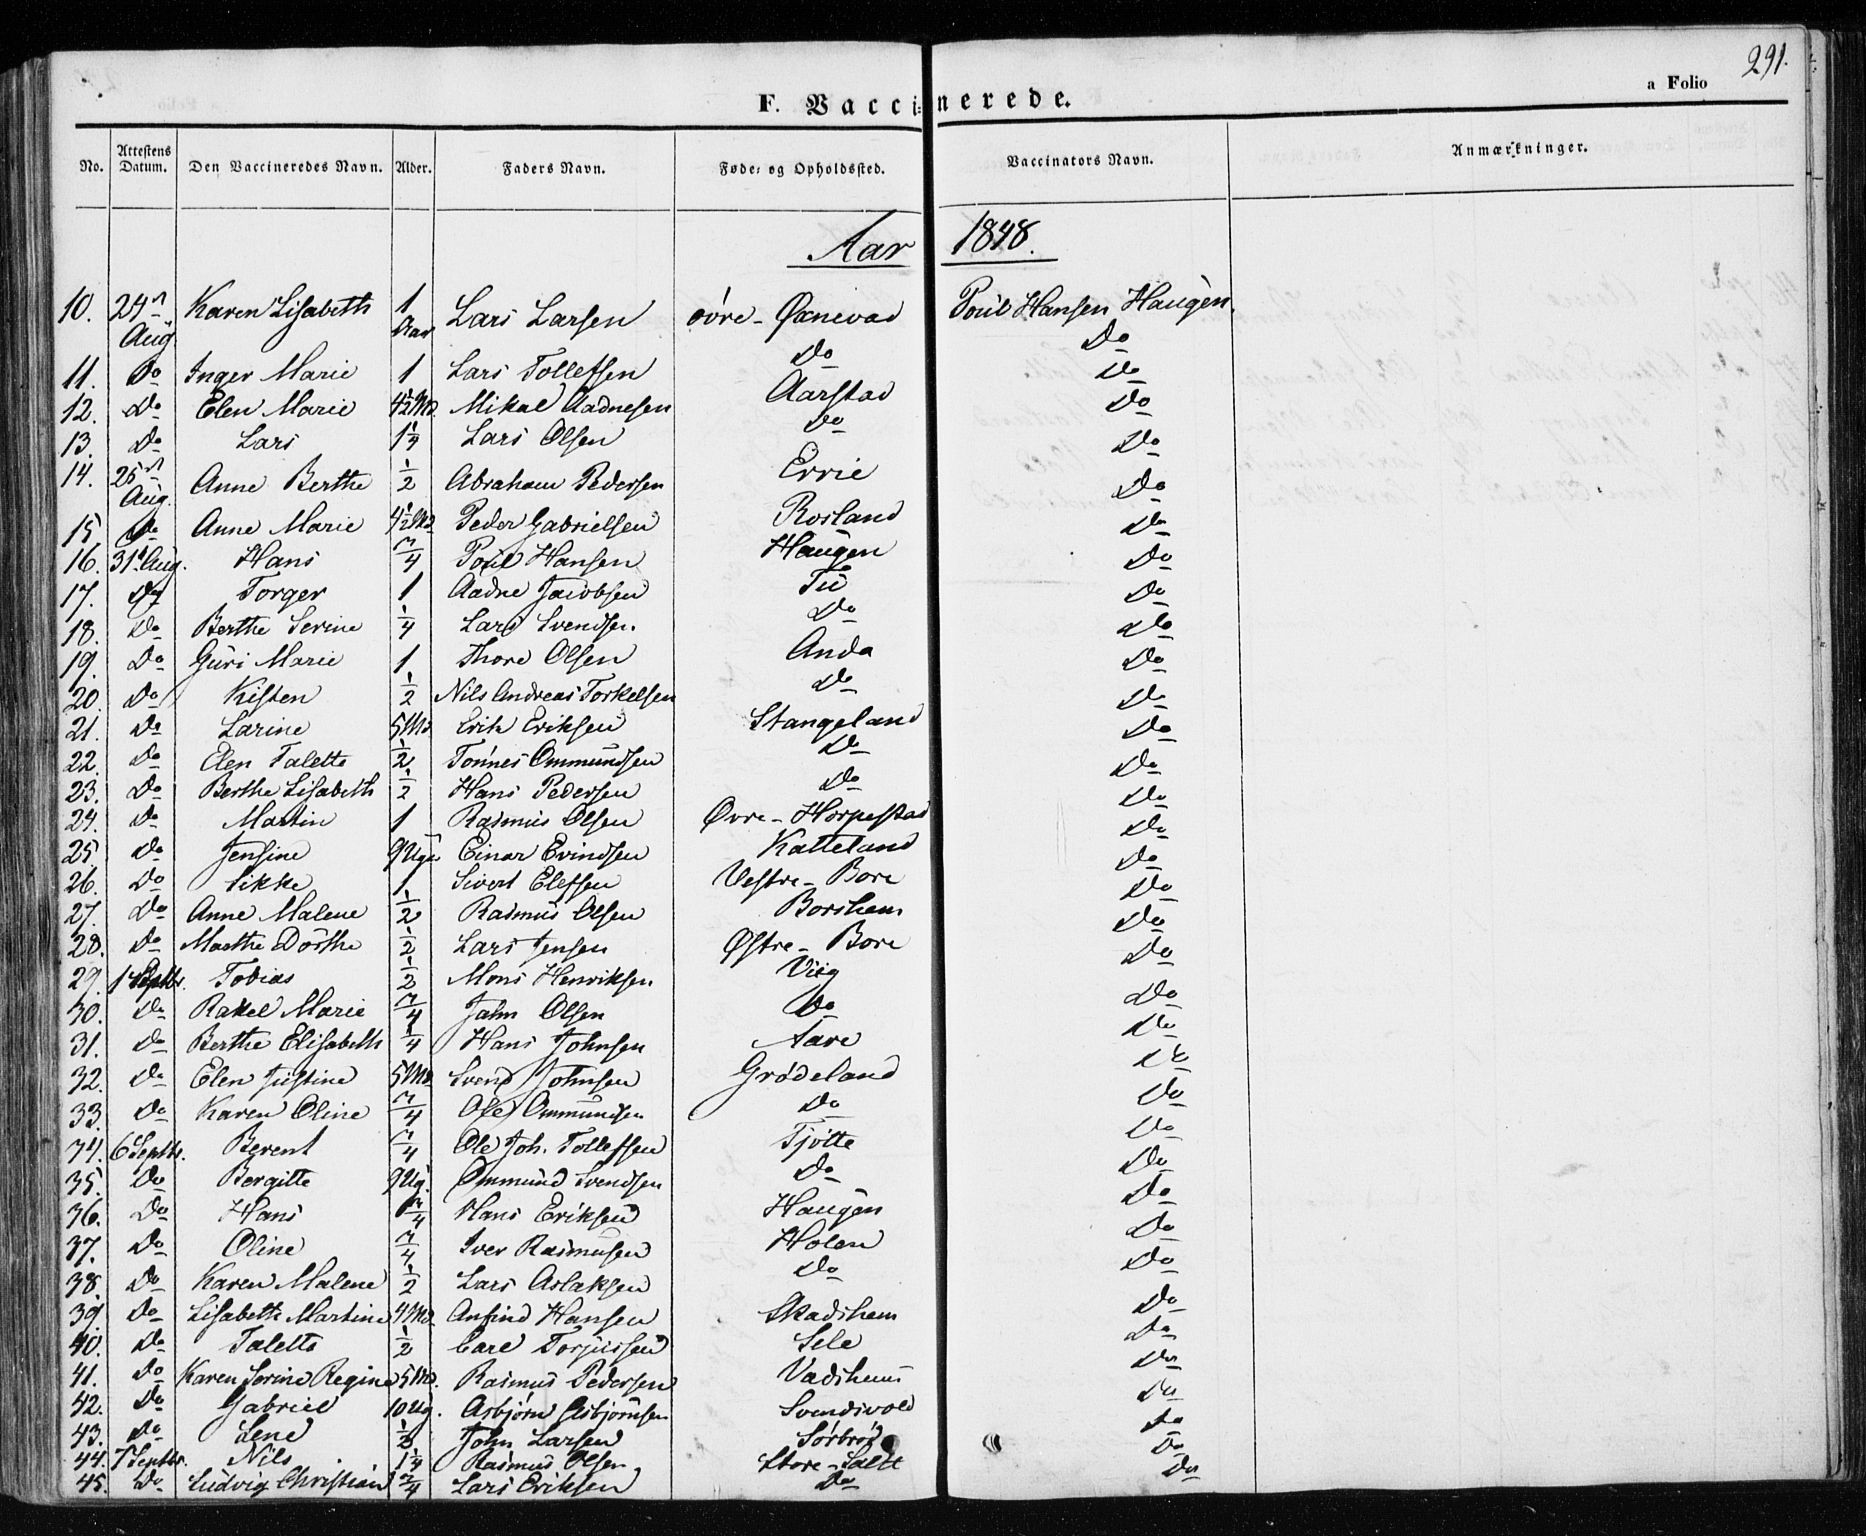 291.
a Folio
F. Vaccinerede.
No. Attestens Datum. Den Vaccineredes Navn. Alder. Faders Navn. Føde- og Opholdssted. Vaccinators Navn. Anmærkninger.
Aar 1848.
10. 24 Aug. Karen Lisabeth 1 Aar Lars Larsen øvre - Øxnevad Poul Hansen Haugen.
11. Do Inger Marie 1 Lars Tollefsen Do Do
12. Do Elen Marie 4½ Md. Mikal Aadnesen Aarstad Do
13. Do Lars 1¼ Lars Olsen Do Do
14. 25 Aug. Anne Berthe ½ Abraham Pedersen Errie Do
15 Do Anne Marie 4½ Md. Peder Gabrielsen Rosland Do
16. 31 Aug. Hans ¾ Poul Hansen Haugen Do
17. Do Torger 1 Aadne Jacobsen Tu Do
18. Do Berthe Serine ¼ Lars Svendsen Do Do
19. Do Guri Marie 1 Thore Olsen Anda Do
20. Do Kisten ½ Nils Andreas Torkelsen Do Do
21. Do Larine 5 Md Erik Eriksen Stangeland Do
22. Do Elen Talette ½ Tønnes Ommundsen Do Do
23. Do Berthe Lisabeth ½ Hans Pedersen Do Do
24. Do Martin 1 Rasmus Olsen Øvre - Horpestad Do
25 Do Jensine 9 Uger Einar Evindsen Katteland Do
26. Do Sikke 1 Sivert Elefsen Vestre - Bore Do
27. Do Anne Malene ½ Rasmus Olsen Borshem Do
28. Do Marthe Dorthe ½ Lars Jensen Østre - Bore Do
29. 1 Septbr. Tobias ½ Mons Henriksen Viig Do
30. Do Rakel Marie ¾ Jahn Olsen Do Do
31. Do Berthe Elisabeth ¼ Hans Johnsen Aare Do
32. Do Elen Justine 5 Md Svend Johnsen Grødeland Do
33. Do Karen Oline ¾ Ole Ommundsen Do Do
34. 6 Septbr. Berent ¾ Ole Joh. Tollefsen Tjøtte Do
35. Do Bergitte 9 Ug. Ommund Svendsen Do Do
36. Do Hans ¾ Hans Eriksen Haugen Do
37. Do Oline ¾ Iver Rasmusen Holen Do
38. Do Karen Malene ½ Lars Aslaksen Do Do
39. Do Lisabeth Martine 4 Md. Anfind Hansen Skadshem Do
40. Do Talette ½ Carl Torjussen Sele Do
41. Do Karen Serine Regine 5 Md. Rasmus Pedersen Vadshem Do
42. Do Gabriel 10 Ug. Asbjørn Asbjørnsen Svendsvold Do
43. Do Lene ½ John Larsen Sørbrød Do
44. 7 Septbr. Nils 1¼ Rasmus Olsen Store - Salte Do
45. Do Ludvig Christian ¾ Lars Eriksen Do Do